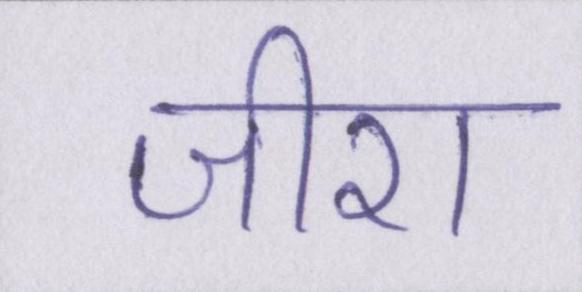 जीरा